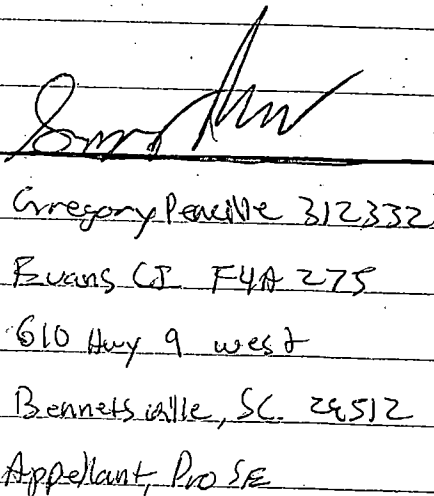 Gregory Pencille 312332
Evans CI F4A 275
610 Hwy 9 west
Bennetsville, SC. 29512
Appellant, Pro SE